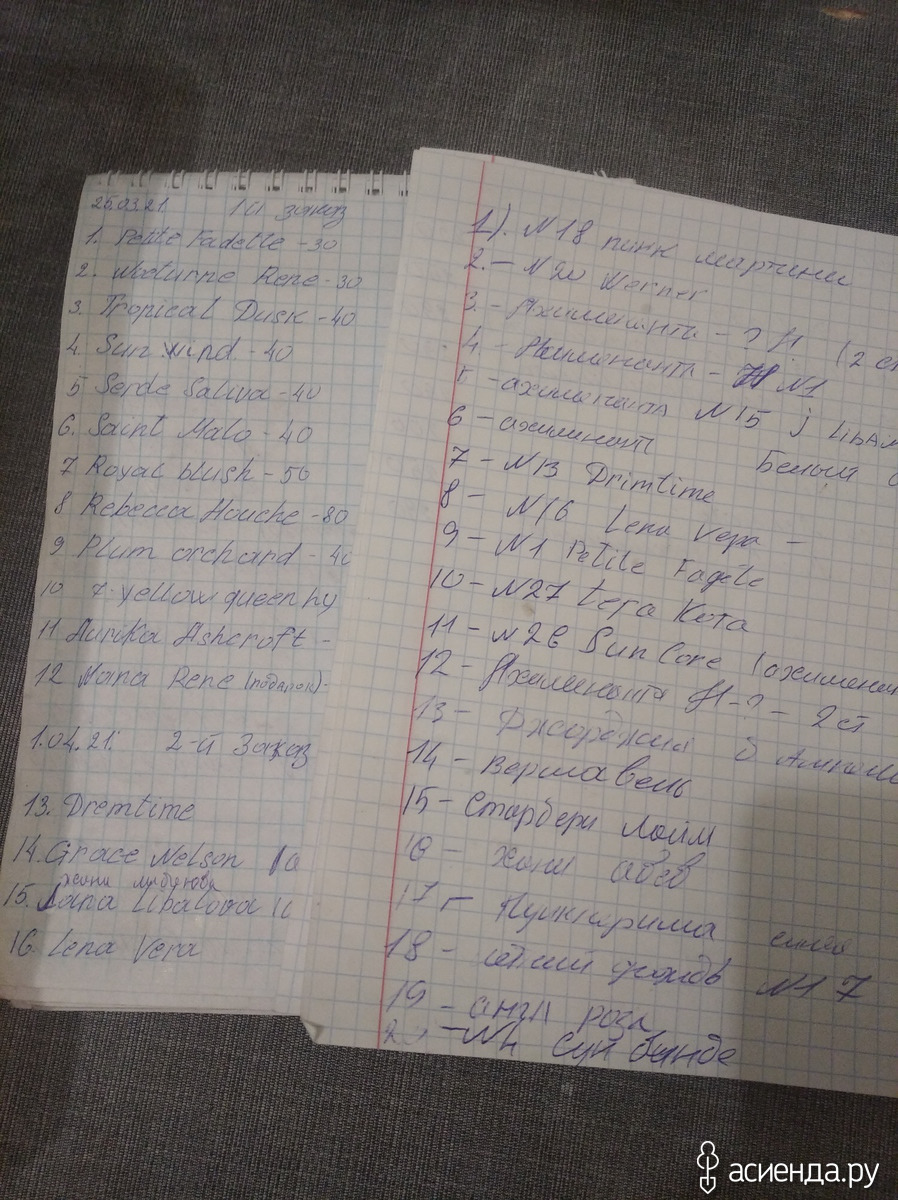 25.03.21. 1й заказ
1. Petite Fadette - 30
2. Nocturne Rene - 30
3. Tropical Dusk - 40
4. Sun wind - 40
5 Serde Saliva - 40
6. Saint Malo - 40
7 Royal blush - 50
8 Rebecca Houche - 80
9 Plum orchard - 40
10 7. yellow queen hy
11 Aurika Ashcroft -
12 Nana Rene (подарок) -
1.04.21. 2-й Заказ
13. Dremtime
14. Grace Nelson
15. Jana Libalova
16. Lena Vera
1). N18 пинк мартини
2. - N20 Werner
3. - Ахименанта - ? H (2 ст
4. - Ахименанта - N1
5 - ахименанта N15 J LibA
6 - ахименант Белый
7 - N13 Drimtime
8 - N16 Lena Vера -
9 - N1 Petite Fadete
10 - N27 tera Кота
11 - N26 Sun Core (ахименан
12 - Ахименанта H - ? - 2 ст
13 -
14 - Верша вель
15 - Старбери Лайм
16 - хани
17 -
18 - N17
19 - англ роза
20 - сун бинде
асиенда.ру